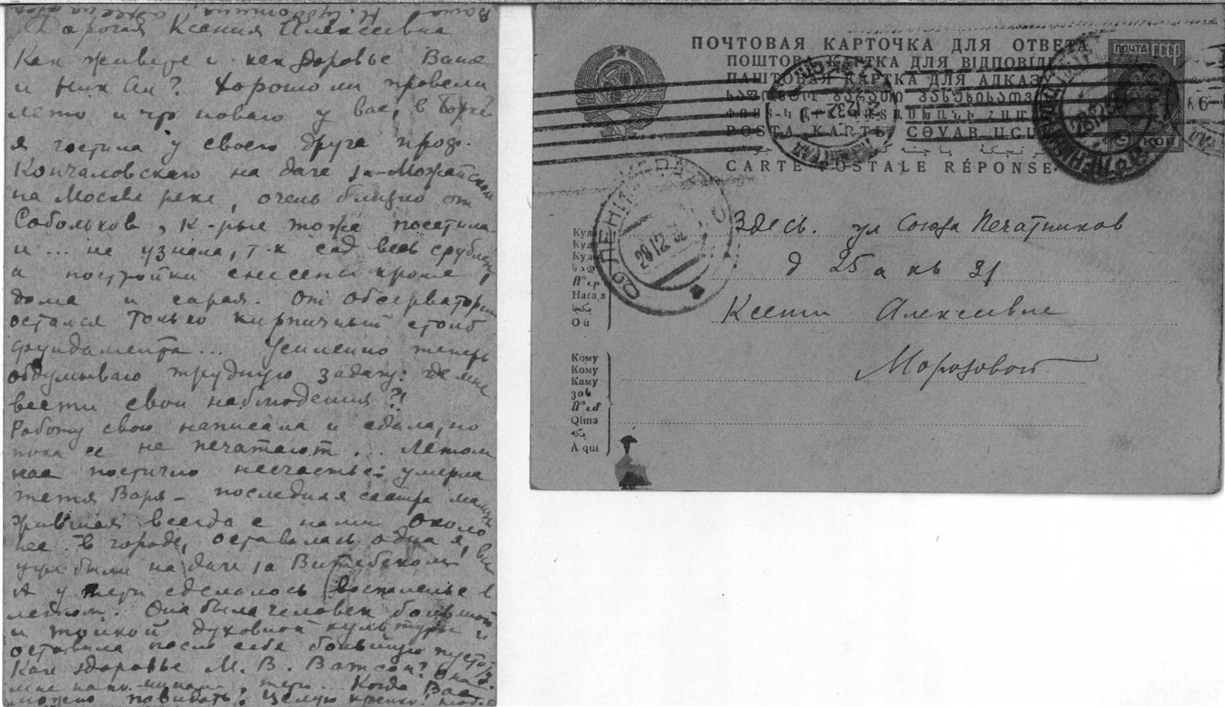 Дорогая Ксения Алексеевна
Как живете и как здоровье Ваше
и Ник Ал? Хорошо ли провели
лето и что нового у вас, в
я гостила у своего друга проф.
Кончаловского на даче за Можайском
на Москве реке, очень близко от
Собольков, к-рые тоже посетила
и ... не узнала, т-к сад весь срублен
и постройки снесены кроме
дома и сарая. От обсерватории
остался только кирпичный столб
фундамента... Усиленно теперь
обдумываю трудную задачу: где мне
вести свои наблюдения?!
Работу свою написала и сдала, но
пока ее не печатают... Летом
нас постигло несчастье: умерла
тетя Варя - последняя сестра мамы
жившая всегда с нами. Около
нее в городе, оставалась одна я, все
уже были на даче за Витебском
А у тети сделалось воспаленье в
легком. Она была человек большой
и тонкой духовной культуры и
оставила после себя большую пустоту.
Как здоровье М. В. Ватсон? Она
мне напоминала тетю... Когда Вас
можно повидать? Целую крепко.
Ваша Н. Субботина
ПОЧТОВАЯ КАРТОЧКА ДЛЯ ОТВЕТА
ПОШТОВА КАРТКА ДЛЯ ВІДПОВІДІ
ПАШТОВАЯ КАРТКА ДЛЯ АДКАЗУ
POSTA KARTЬ CƏVAR UCU
CARTE POSTALE RÉPONSE
ПОЧТА
КОП
ЛЕНИНГРАД
29 12 32
Куда
Нагада
Ой
Здесь. ул Союза Печатников
д 25а кв 31
Ксении Алексеевне
Кому
Кому
Каму
Qimə
A qui
Морозовой